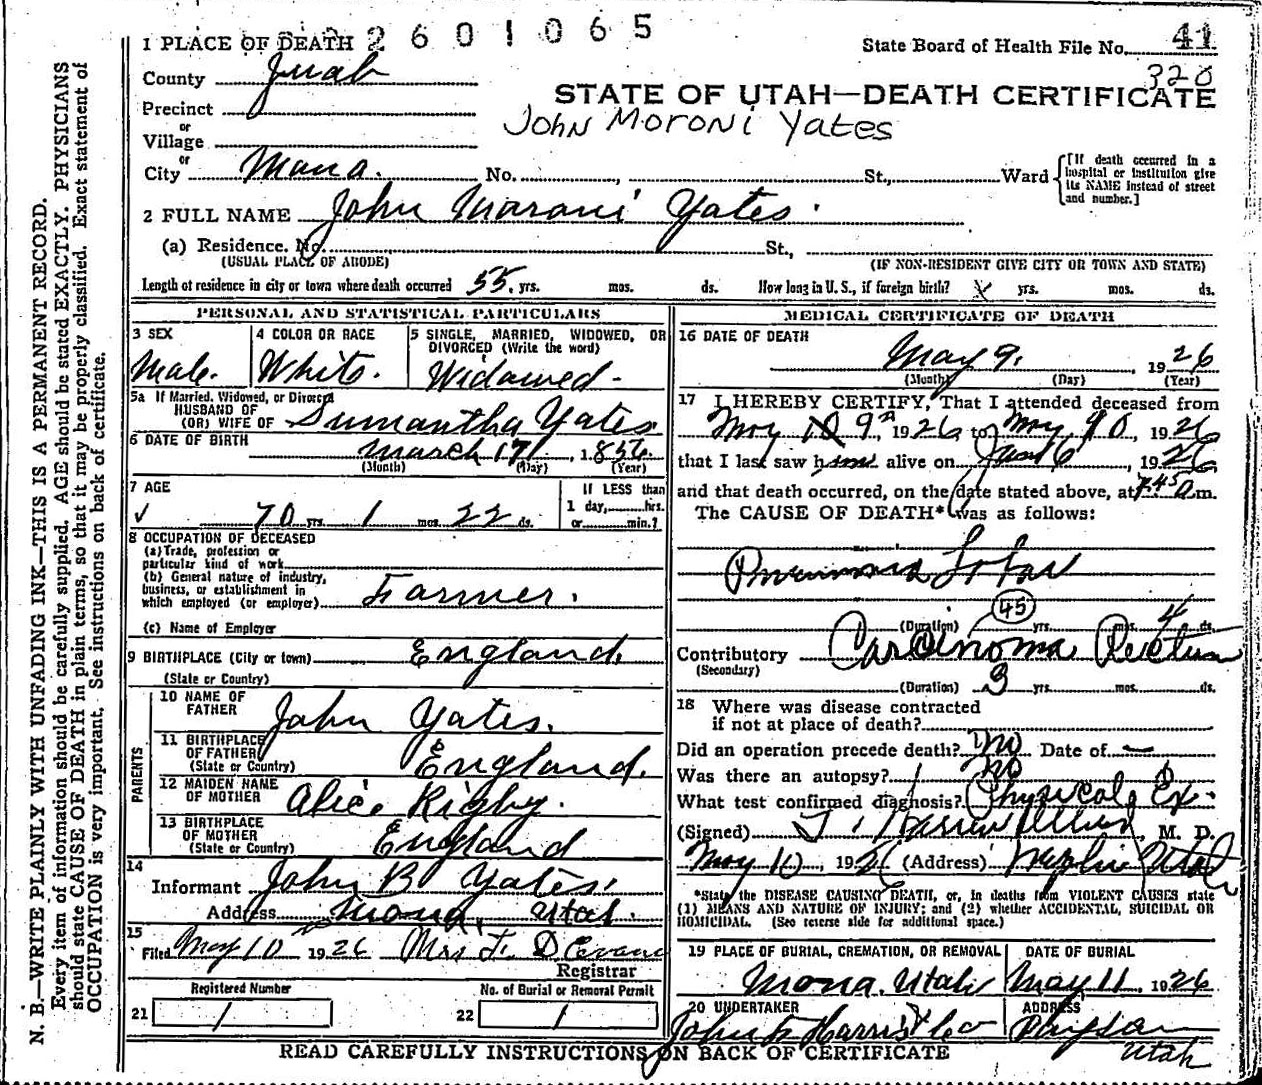 N. B.—WRITE PLAINLY WITH UNFADING INK—THIS IS A PERMANENT RECORD.
Every item of information should be carefully supplied. AGE should be stated EXACTLY. PHYSICIANS
should state CAUSE OF DEATH in plain terms, so that it may be properly classified. Exact statement of
OCCUPATION is very important. See instructions on back of certificate.
2601065
1 PLACE OF DEATH
State Board of Health File No. 41
320
County Juab
STATE OF UTAH—DEATH CERTIFICATE
Precinct
John Moroni Yates
or
Village
or
City Mona. No. , St., Ward
[If death occurred in a
hospital or institution give
its NAME instead of street
and number.]
2 FULL NAME John Moroni Yates.
(a) Residence. No. St.,
(USUAL PLACE OF ABODE) (IF NON-RESIDENT GIVE CITY OR TOWN AND STATE)
Length of residence in city or town where death occurred 55. yrs. mos. ds. How long in U. S., if foreign birth? yrs. mos. ds.
PERSONAL AND STATISTICAL PARTICULARS
3 SEX
Male.
4 COLOR OR RACE
White.
5 SINGLE, MARRIED, WIDOWED, OR
DIVORCED (Write the word)
Widowed-
5a If Married, Widowed, or Divorced
HUSBAND OF
(OR) WIFE OF Sumantha Yates
6 DATE OF BIRTH
March 17, 1856.
(Month) (Day) (Year)
7 AGE
70 yrs. 1 mos. 22 ds.
If LESS than
1 day, hrs.
or min.?
8 OCCUPATION OF DECEASED
(a) Trade, profession or
particular kind of work
(b) General nature of industry,
business, or establishment in
which employed (or employer) Farmer.
(c) Name of Employer
9 BIRTHPLACE (City or town) England.
(State or Country)
PARENTS
10 NAME OF
FATHER John Yates.
11 BIRTHPLACE
OF FATHER
(State or Country) England.
12 MAIDEN NAME
OF MOTHER Alice Rigby.
13 BIRTHPLACE
OF MOTHER
(State or Country) England
14
Informant John B Yates.
Address Mona, Utah.
15
Filed May 10 1926 Mrs F. D. Evans
Registrar
Registered Number
21 1
No. of Burial or Removal Permit
22 1
MEDICAL CERTIFICATE OF DEATH
16 DATE OF DEATH
May 9. 1926
(Month) (Day) (Year)
17 I HEREBY CERTIFY, That I attended deceased from
May 9, 1926 to May 10, 1926
that I last saw him alive on 6, 1926
and that death occurred, on the date stated above, at 45 a m.
The CAUSE OF DEATH* was as follows:
Pneumonia Lobar
45
(Duration) yrs. mos. 4 ds.
Contributory Carcinoma Rectum
(Secondary)
(Duration) 3 yrs. mos. ds.
18 Where was disease contracted
if not at place of death?
Did an operation precede death? No Date of —
Was there an autopsy? No
What test confirmed diagnosis? Physical Ex.
(Signed) M. D.
May 10, 1926 (Address) Nephi Utah
*State the DISEASE CAUSING DEATH, or, in deaths from VIOLENT CAUSES state
(1) MEANS AND NATURE OF INJURY; and (2) whether ACCIDENTAL, SUICIDAL OR
HOMICIDAL. (See reverse side for additional space.)
19 PLACE OF BURIAL, CREMATION, OR REMOVAL
Mona. Utah
DATE OF BURIAL
May 11, 1926
20 UNDERTAKER
John Harris & Co
ADDRESS
Payson
Utah
READ CAREFULLY INSTRUCTIONS ON BACK OF CERTIFICATE